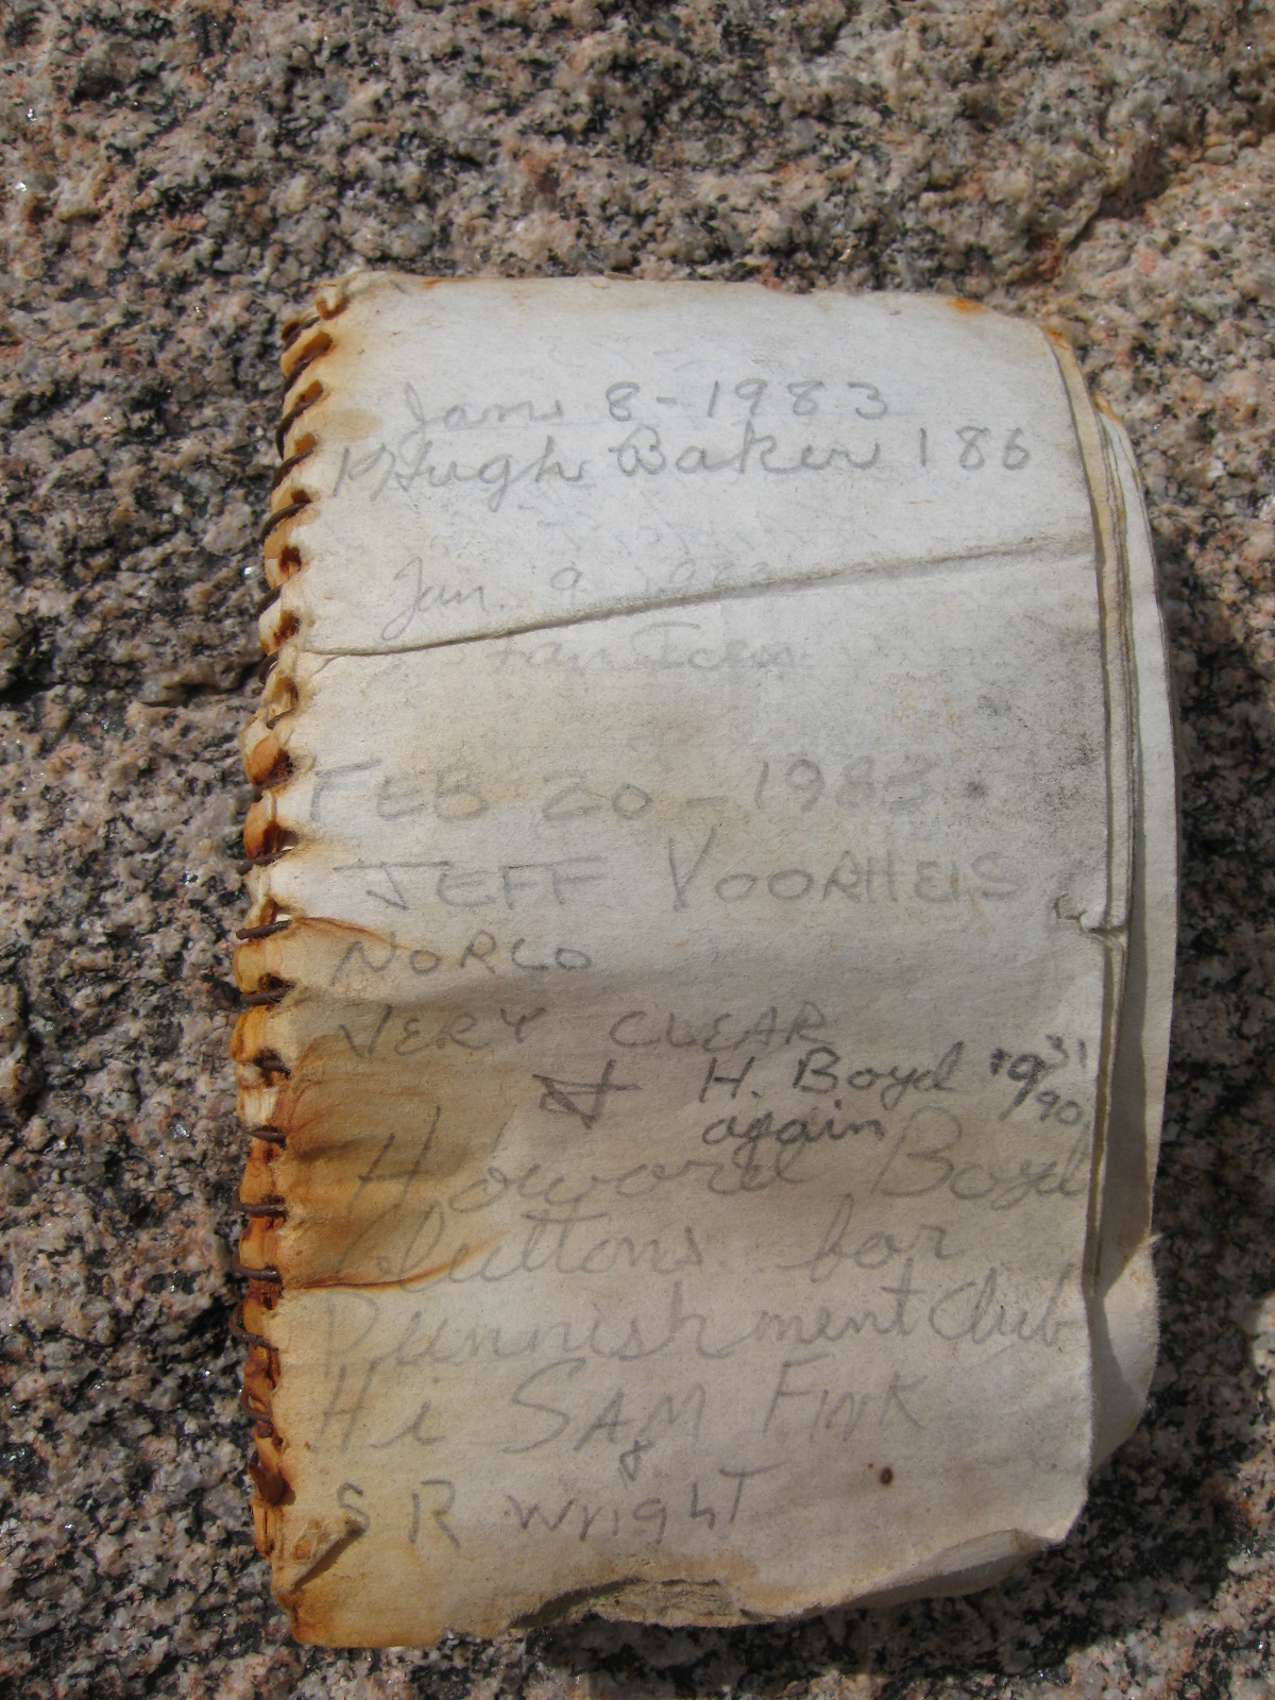 Jan 8-1983
Hugh Baker 186
Jan. 9 1983
FEB 20 - 1983
JEFF VOORHEIS
NORCO
VERY CLEAR
& H. Boyd
again
Howard Boyd
for
Punnishment Club
Hi SAM FINK
&
S R Wright